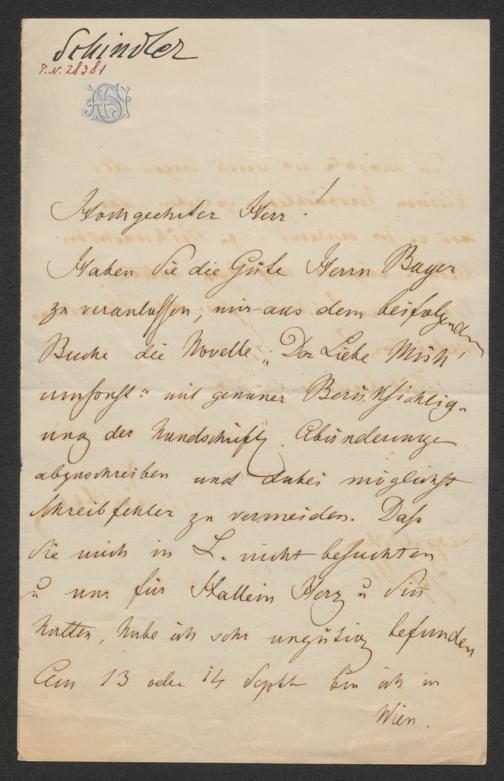 Schindler
I.N. 28381
Hochgeehrter Herr!
Haben Sie die Güte Herrn Bayer
zu veranlassen, mir aus dem beifolgenden
Buche die Novelle: "Der Liebe Müh'
umsonst" mit genauer Berüksichtig-
ung der handschriftl. Abänderungen
abzuschreiben und dabei möglichst
Schreibfehler zu vermeiden. Daß
Sie mich in L. nicht besuchten
u nur für Hallein Herz u Sinn
hatten, habe ich sehr ungütig befunden
Am 13 oder 14 Septb bin ich in
Wien.